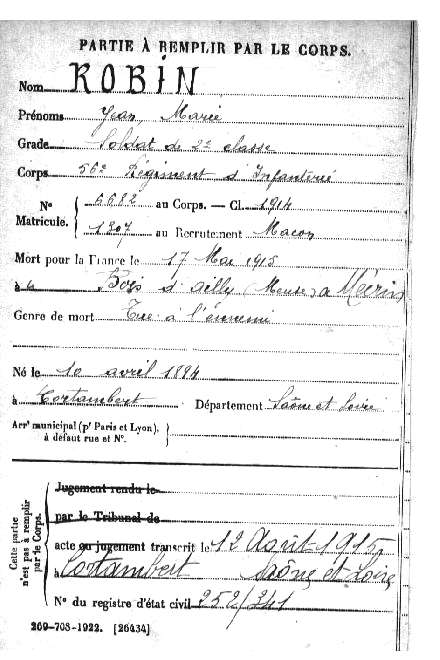 PARTIE À REMPLIR PAR LE CORPS.
Nom ROBIN
Prénoms Jean, Marie
Grade Soldat de 2e classe
Corps 56e Régiment d'Infanterie
N° Matricule. { 6682 au Corps. — Cl. 1914
1307 au Recrutement Macon
Mort pour la France le 17 Mai 1915
à Bois d'ailly (Meuse) a
Genre de mort Tué à l'ennemi
Né le 10 avril 1894
à Cortambert Département Saône et Loire
Arrt municipal (pr Paris et Lyon),
à défaut rue et N°.
Cette partie n'est pas à remplir par le Corps.
Jugement rendu le
par le Tribunal de
acte ou jugement transcrit le 12 Août 1915
à Cortambert Saône et Loire
N° du registre d'état civil 252/241
269-708-1922. [26434]